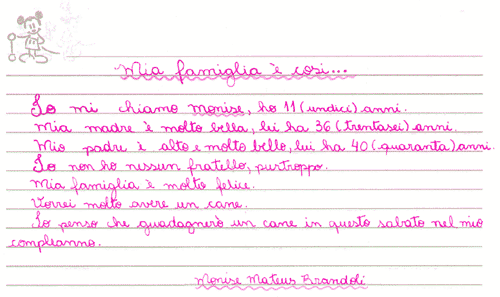 Mia famiglia è così...
Io mi chiamo Monise, ho 11 (undici) anni.
Mia madre è molto bella, lui ha 36 (trentasei) anni.
Mio padre è alto e molto bello, lui ha 40 (quaranta) anni.
Io non ho nessun fratello, purtroppo.
Mia famiglia è molto felice.
Vorrei molto avere un cane.
Io penso che guadagnerò un cane in questo sabato nel mio
compleanno.
Monise Mateus Brandoli